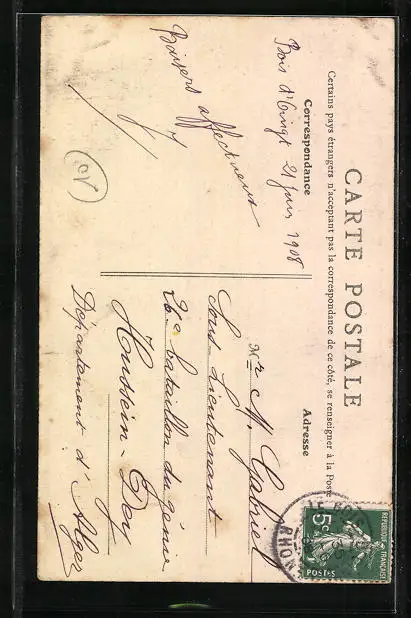 CARTE POSTALE
Certains pays étrangers n'acceptant pas la correspondance de ce côté, se renseigner à la Poste
Correspondance
Bois d'Oingt 21 juin 1908
Baisers affectueux
Adresse
Mr M. Gabriel
Sous Lieutenant
26e bataillon du génie
Hussein-Dey
Département d'Alger
REPUBLIQUE FRANÇAISE
5c
POSTES
RHON